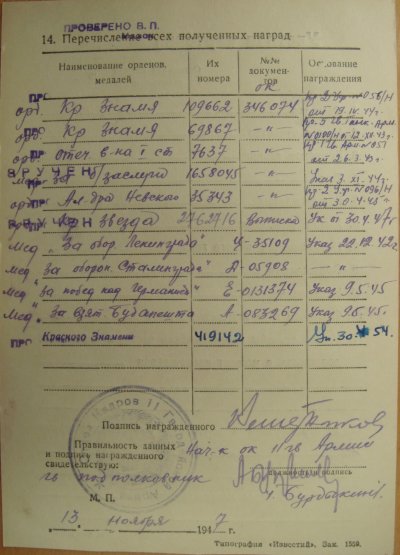 ПРОВЕРЕНО В.П.
14. Перечисление всех полученных наград
Наименование орденов, медалей Их номера №№ документов Основание награждения
ок
орд. Кр Знамя 109662 346074 от 19.IV.44г.
орд. Кр Знамя 69867 —"— 12.XII.43г.
орд. Отеч в-на I ст 7637 —"— от 26.3.45г.
ВРУЧЕН
мед За б/заслуги 1658045 —"— Указ 3.XI.44г.
орд. Ал-др Невского 35343 —"— от 30.4.45г
ВРУЧЕН
орд. Кр Звезда 2762716 Выписка Ук от 30.4.47г.
мед „За обор. Ленинграда" Ч-35109 Указ 22.12.42г.
мед „За оборон. Сталинграда" А-05908 —"—
мед „За побед над Германией" Е-0131374 Указ 9.5.45.
мед „За взят. Будапешта А-083269 Указ 9.6.45.
Красного Знамени 419142 Ук. 30. 54.
Подпись награжденного
Правильность данных и подпись награжденного свидетельствую:
Нач-к ОК 11 гв Армии
должность и подпись
гв подполковник
М. П.
13 ноября 1947 г.
Типография «Известий». Зак. 1559.